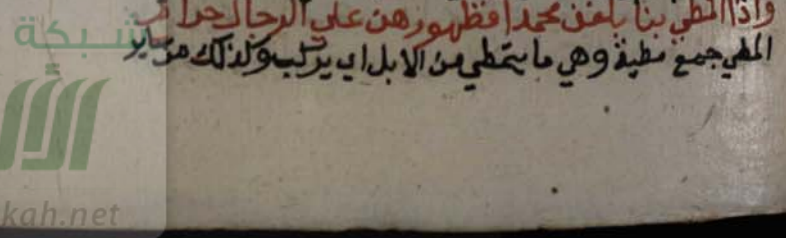 واذا المطي بنا بلغن محمدا فظهورهن علي الرجال حرام
المطي جمع مطية وهي ما يتمطي من الابل اي يركب وكذلك من ساير
شبكة
kah.net